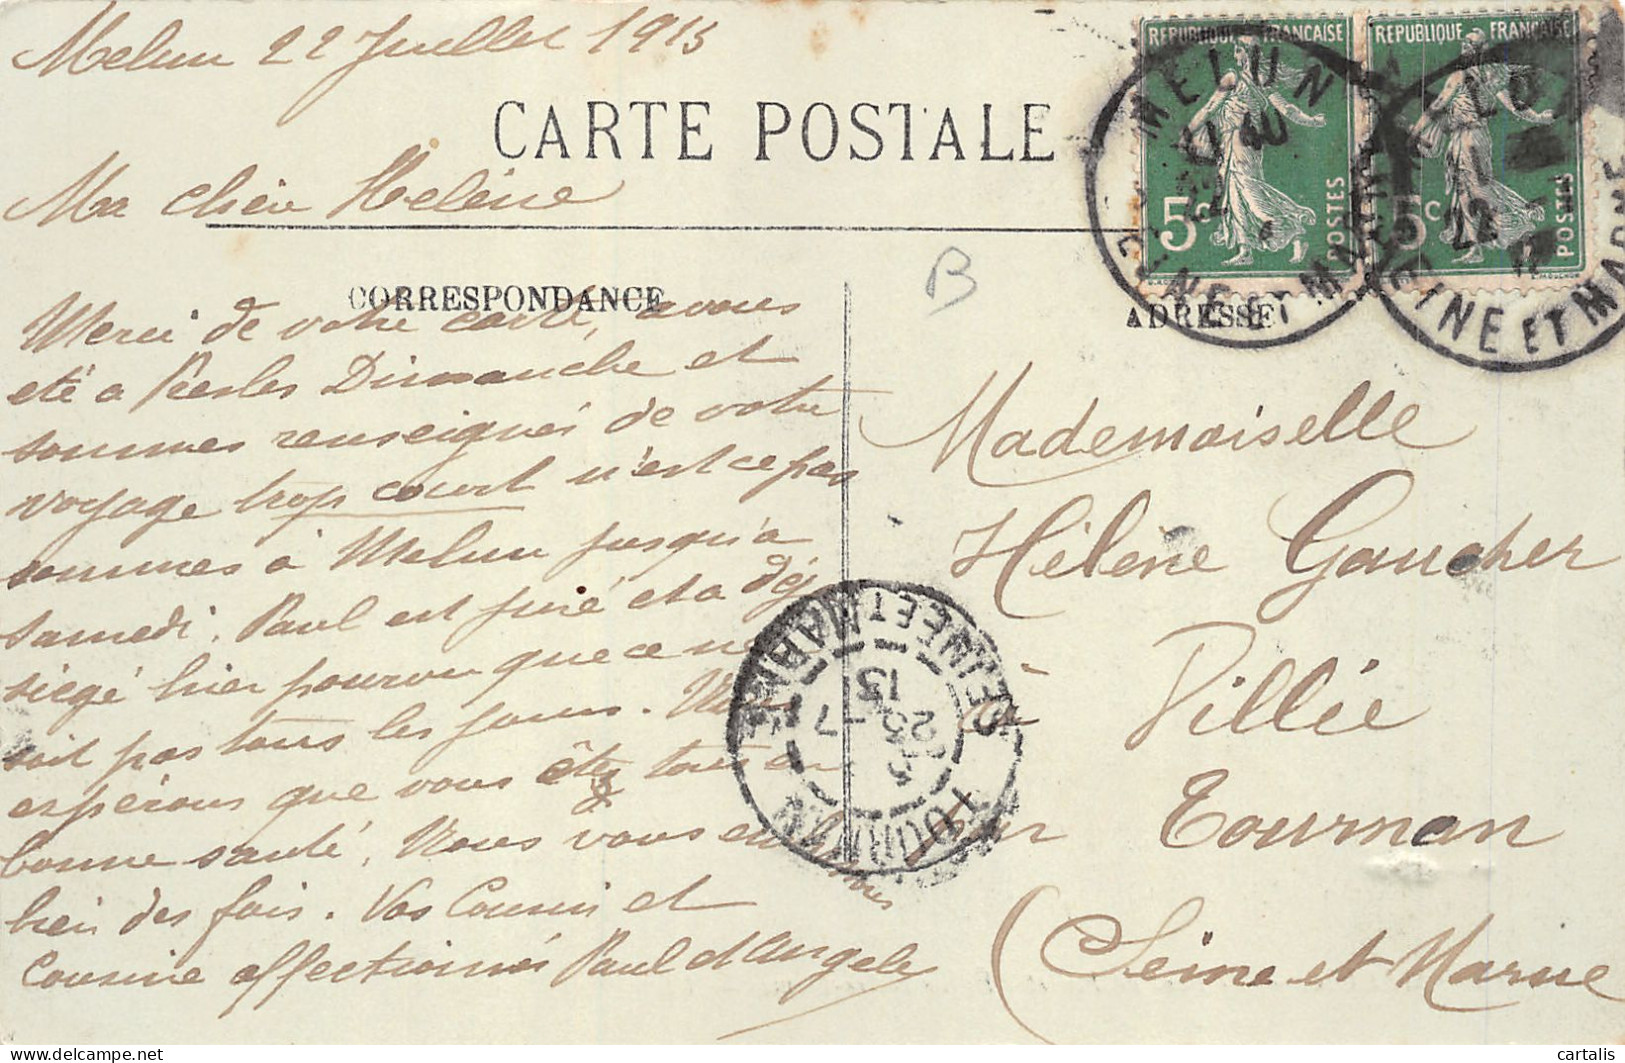 Melun 22 Juillet 1913
CARTE POSTALE
Ma chère Helène
CORRESPONDANCE
ADRESSE
Merci de votre carte, avons
été a Presles Dimanche et
sommes renseignés de votre
voyage trop court n'est ce pas
sommes à Melun jusqu'a
samedi. Paul est juré et a déj
siégé hier pourvu que ce ne
soit pas tous les jours. Nous
espérons que vous êtes tous en
bonne santé. Nous vous embrassons
bien des fois. Vos Cousin et
Cousine affectionnés Paul et Angele
B
Mademoiselle
Hélène Gaucher
à Villée
par Tournan
(Seine et Marne
REPUBLIQUE FRANÇAISE
5c
POSTES
REPUBLIQUE FRANÇAISE
5c
POSTES
MELUN
17 40
22
SEINE ET MARNE
MELUN
22
SEINE ET MARNE
TOURNAN
25 -7
13
SEINE ET MARNE
cartalis